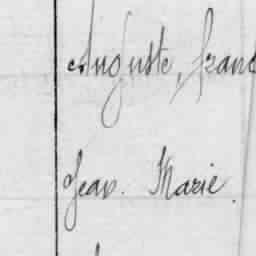 Auguste, franc
Jean. Marie.